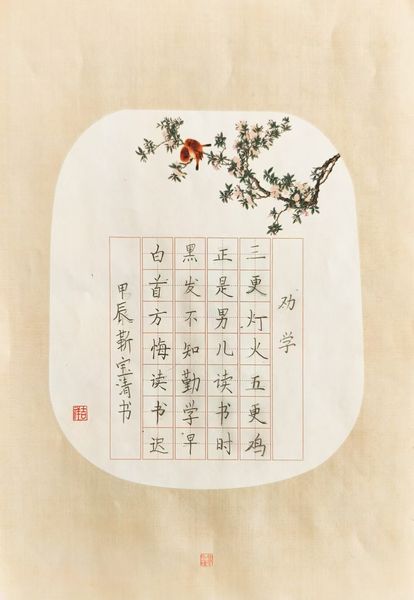 劝学
三更灯火五更鸡
正是男儿读书时
黑发不知勤学早
白首方悔读书迟
甲辰靳宝清书